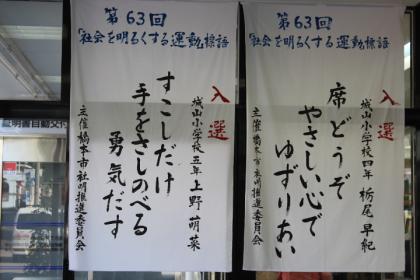 第63回
「社会を明るくする運動標語
入選
城山小学校五年 上野萌菜
すこしだけ
手をさしのべる
勇気だす
主催 橋本市社明推進委員会
証明書自動交付
第63回
「社会を明るくする運動標語
入選
城山小学校四年 栃尾早紀
席どうぞ
やさしい心で
ゆずりあい
主催 橋本市社明推進委員会